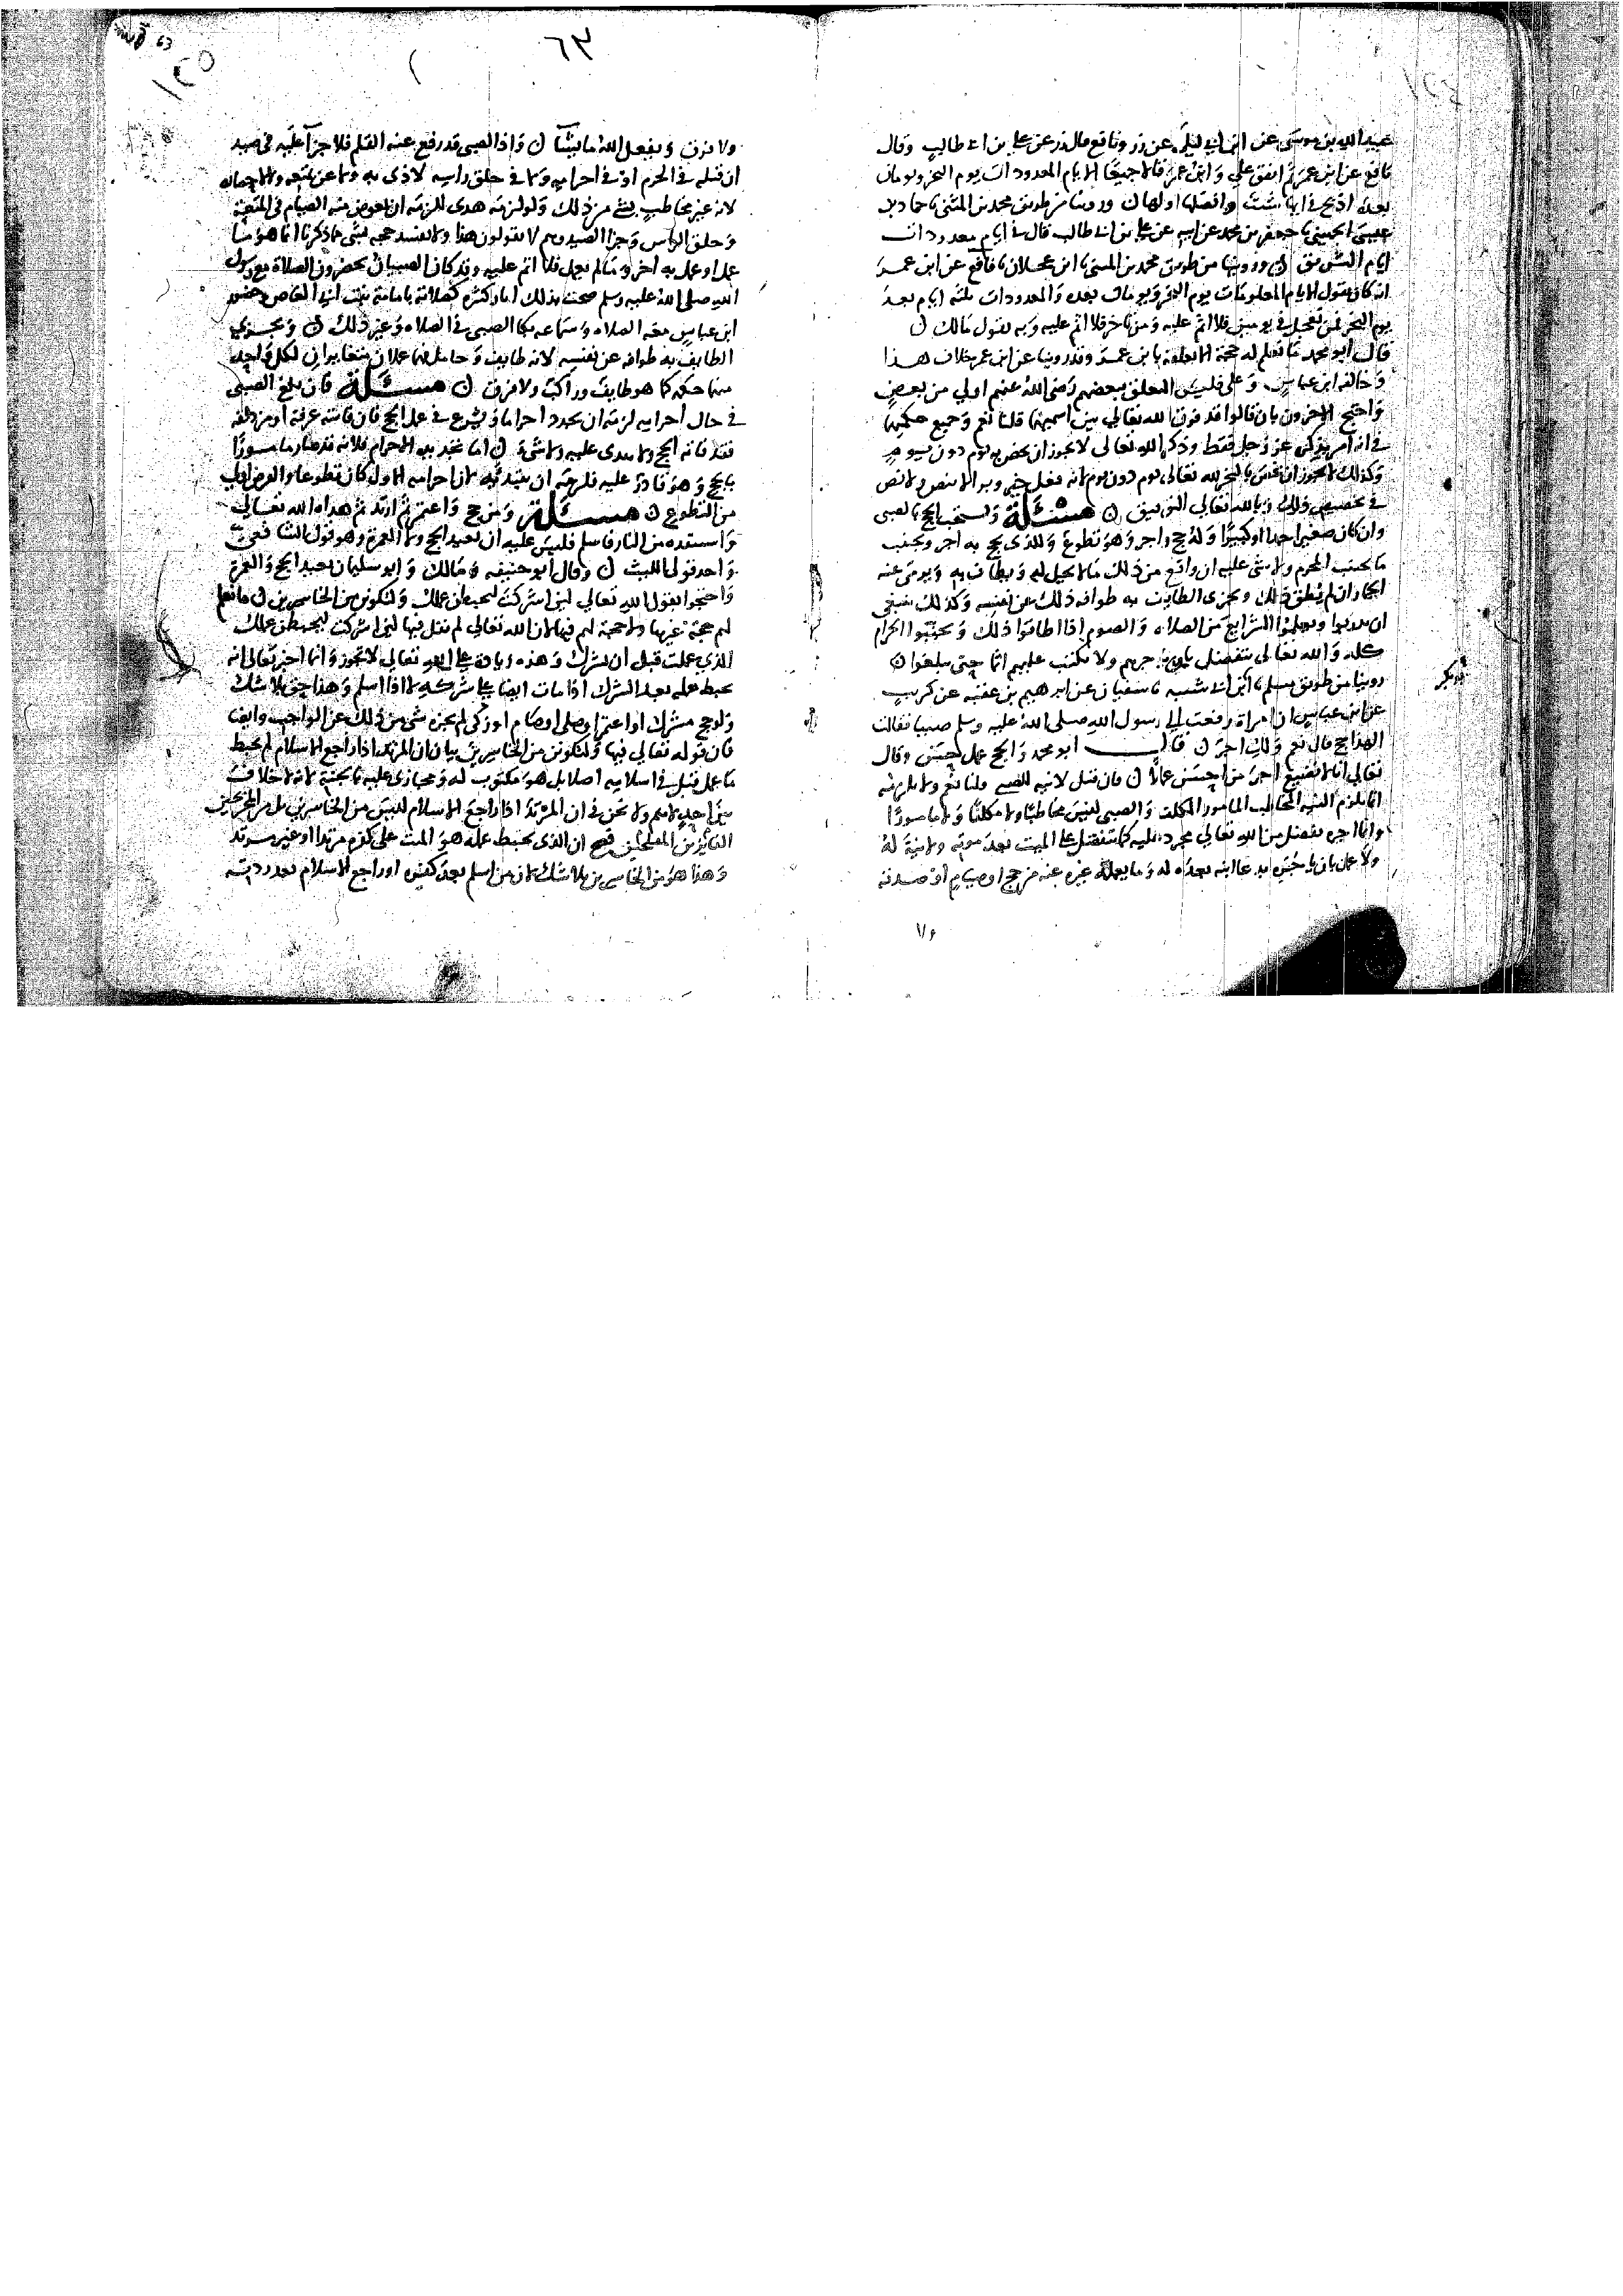 عبيد الله بن موسى عن ابن ابي ليلى عن زر ونافع قال زر عن علي بن ابي طالب وقال
نافع عن ابن عمر ثم اتفق علي وابن عمر قالا جميعا الايام المعدودات يوم النحر ويومان
بعده اذبح في ايها شئت وافضلها اولها ن وروينا من طريق محمد بن المثنى نا حماد بن
عيسى الجهني نا جعفر بن محمد عن ابيه عن علي بن ابي طالب قال في ايام معدودات
ايام التشريق ن وروينا من طريق محمد بن المثنى نا ابن عجلان نا نافع عن ابن عمر
انه كان يقول الايام المعلومات يوم النحر ويومان بعده والمعدودات ثلثة ايام بعد
يوم النحر فمن تعجل في يومين فلا اثم عليه ومن تاخر فلا اثم عليه وبه يقول مالك ن
قال ابو محمد ما نعلم له حجة الا تعلقه بابن عمر وقد روينا عن ابن عمر خلاف هذا
وخالفه ابن عباس وعلي فليس التعلق ببعضهم رضي الله عنهم اولي من بعض
واحتج اخرون بان قالوا قد فرق الله تعالي بين اسميهما قلنا نعم وجمع حكمهما
في انه امر بذكره عز وجل فقط وذكر الله تعالى لا يجوز ان يخص به يوم دون يوم
وكذلك لا يجوز ان يخص بالنحر لله تعالى يوم دون يوم لانه فعل خير وبر الا بنص ولا نص
في تخصيص ذلك وبالله تعالى التوفيق ن مسئلة ونستحب الحج بالصبي
وان كان صغيرا جدا او كبيرا وله حج واجر وهو تطوع وللذي يحج به اجر ويجتنب
ما يجتنب المحرم ولا شي عليه ان واقع من ذلك ما لا يحل له ويطاف به ويرمى عنه
الجمار ان لم يطق ذلك ويجزي الطايف به طوافه ذلك عن نفسه وكذلك ينبغي
ان يدربوا ويعلموا الشرايع من الصلاه والصوم اذا اطاقوا ذلك ويجنبوا الحرام
كله والله تعالى يتفضل بان ياجرهم ولا يكتب عليهم اثما حتى يبلغوا ن
روينا من طريق مسلم نا ابن ابي شيبه نا سفيان عن ابرهيم بن عقبه عن كريب
عن ابن عباس ان امراة رفعت الي رسول الله صلى الله عليه وسلم صبيا فقالت
الهذا حج قال نعم ولك اجر ن قال ابو محمد والحج عمل حسن وقال
تعالى انا لا نضيع اجر من احسن عملا ن فان قيل لا نيه للصبي قلنا نعم ولا تلزمه
انما تلزم النيه المخاطب المامور المكلف والصبي ليس مخاطبا ولا مكلفا ولا مامورا
وانما اجره تفضل من الله تعالي مجرد عليه كما يتفضل على الميت بعد موته ولا نية له
ولا عمل بان ياجره بدعا ابنه بعده له وما يعمله غيره عنه من حج او صيام او صدقه
٦٣
ولا فرق ويفعل الله ما يشآ ن واذ الصبي قد رفع عنه القلم فلا جزآ عليه في صيد
ان قتله في الحرم او في احرامه ولا في حلق راسه لاذى به ولا عن تمتعه ولا لاحصاره
لانه غير مخاطب بشي من ذلك ولو لزمه هدى للزمه ان يعوض منه الصيام في المتعة
وحلق الراس وجزا الصيد وهم لا يقولون هذا ولا يفسد حجه بشي مما ذكرنا انما هو ما
عمل او عمل به اجر وما لم يعمل فلا اثم عليه وقد كان الصبيان يحضرون الصلاة مع رسول
الله صلى الله عليه وسلم صحت بذلك اثار كثيره كصلاته بامامة بنت ابي العاص وحضور
ابن عباس معه الصلاه وسماعه بكا الصبي في الصلاه وغير ذلك ن ويجزي
الطايف به طوافه عن نفسه لانه طايف وحامل فهما عملان متغايران لكل واحد
منهما حكم كما هو طايف وراكب ولا فرق ن مسئلة فان بلغ الصبي
في حال احرامه لزمه ان يجدد احراما ويشرع في عمل الحج فان فاتته عرفة او مزدلفه
فقد فاته الحج ولا هدى عليه ولا شي ن اما تجديده الاحرام فلانه قد صار مامورا
بالحج وهو قادر عليه فلزمه ان يبتدئه لان احرامه الاول كان تطوعا والفرض اولى
من التطوع ن مسئلة ومن حج واعتمر ثم ارتد ثم هداه الله تعالى
واستنقذه من النار فاسلم فليس عليه ان يعيد الحج ولا العمرة وهو قول الشافعي
واحد قولي الليث ن وقال ابو حنيفه ومالك وابو سليمان يعيد الحج والعمرة
واحتجوا بقول الله تعالي لين اشركت ليحبطن عملك ولتكونن من الخاسرين ن ما نعلم
لهم حجة غيرها ولا حجة لهم فيها لان الله تعالى لم يقل فيها لين اشركت ليحبطن عملك
الذي عملت قبل ان تشرك وهذه زيادة على الله تعالى لا تجوز وانما اخبر تعالى انه
يحبط عمله بعد الشرك اذا مات ايضا على شركه لا اذا اسلم وهذا حق بلا شك
ولو حج مشرك او اعتمر او صلى او صام او زكى لم يجزه شي من ذلك عن الواجب وايضا
فان قوله تعالي فيها ولتكونن من الخاسرين بيان ان المرتد اذا راجع الاسلام لم يحبط
ما عمل قبل في اسلامه اصلا بل هو مكتوب له ومجازى عليه بالجنة لانه لا خلاف
بين احد لا هم ولا نحن في ان المرتد اذا راجع الاسلام ليس من الخاسرين بل من المربحين
الفائزين المفلحين فصح ان الذى يحبط عمله هو الميت على كفره مرتدا او غير مرتد
وهذا هو من الخاسرين بلا شك لا من اسلم بعد كفره او راجع الاسلام بعد ردته